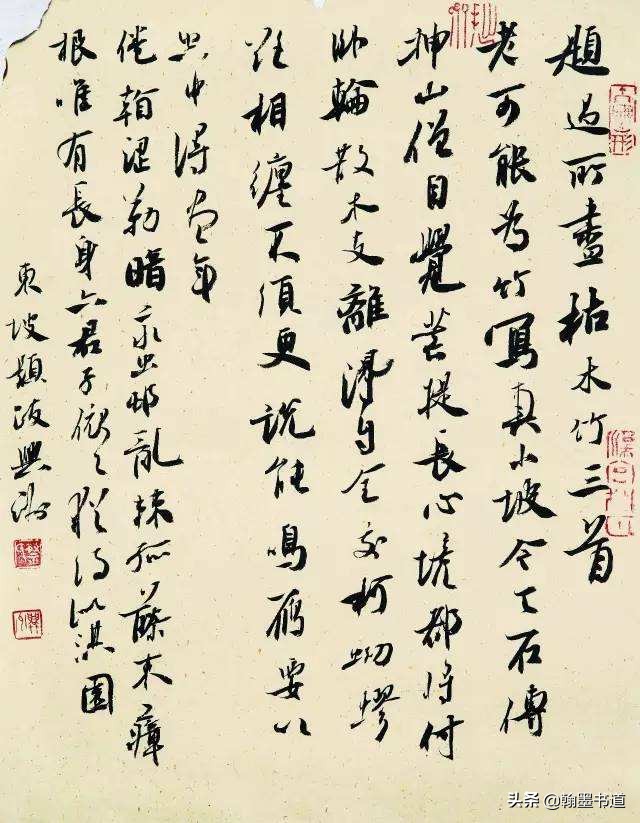 題過所畫枯木竹三首
老可能為竹寫真小坡今與石傳
神山僧自覺菩提長心境都將付
卧輪散木支離得自全交柯蚴蟉
欲相纏不須更說能鳴雁要以
空中得盡年
倦看澀勒暗蠻邨亂棘孤藤束瘴
根唯有長身六君子依依猶得似淇園
東坡題跋
头条 @翰墨书道